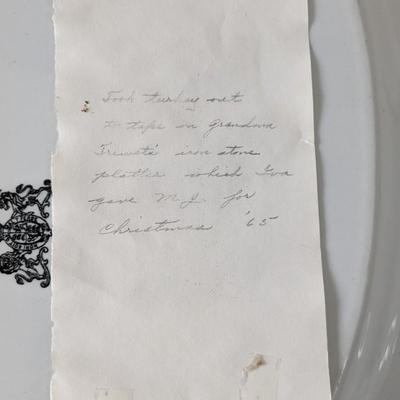 Took turkey out
to taps on Grandma
Trewets' iron stone
platter which Iva
gave M.J. for
Christmas '65